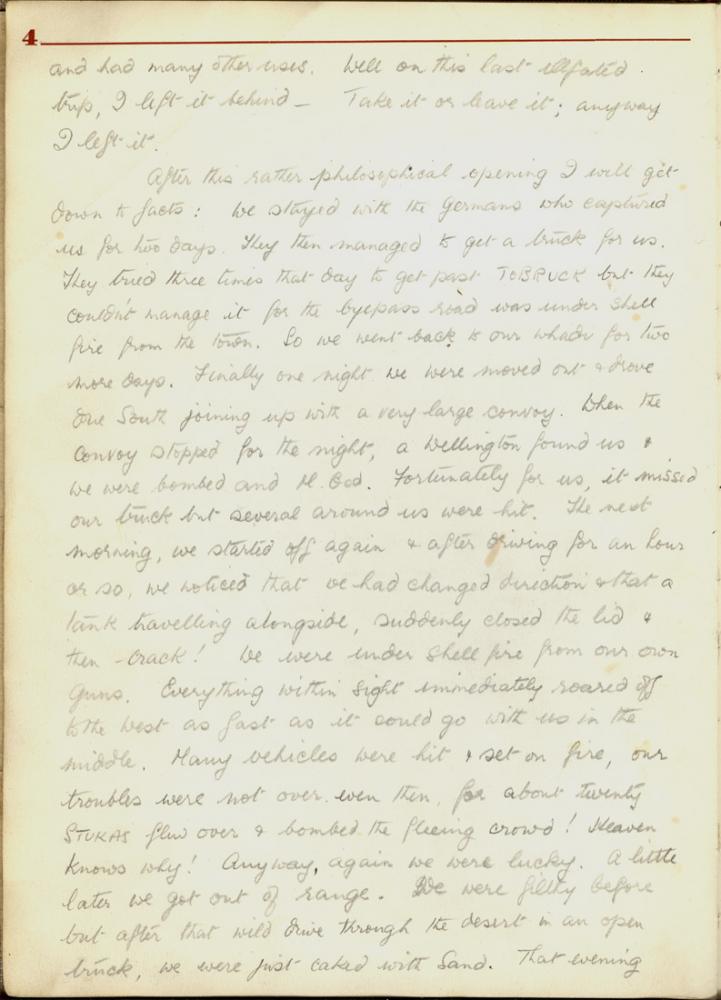 4
and had many other uses. Well on this last illfated
trip, I left it behind — Take it or leave it; anyway
I left it.
After this rather philosophical opening I will get
down to facts: We stayed with the Germans who captured
us for two days. They then managed to get a truck for us.
They tried three times that day to get past TOBRUCK but they
couldn't manage it for the byepass road was under shell
fire from the town. So we went back to our whadi for two
more days. Finally one night we were moved out & drove
due South joining up with a very large convoy. When the
convoy stopped for the night, a Wellington found us &
we were bombed and M. God. Fortunately for us, it missed
our truck but several around us were hit. The next
morning, we started off again & after driving for an hour
or so, we noticed that we had changed direction & that a
tank travelling alongside, suddenly closed the lid &
then - Crack! We were under shell fire from our own
guns. Everything within sight immediately roared off
to the West as fast as it could go with us in the
middle. Many vehicles were hit & set on fire, our
troubles were not over even then, for about twenty
STUKAS flew over & bombed the fleeing crowd! Heaven
knows why! Anyway, again we were lucky. A little
later we got out of range. We were filthy before
but after that wild drive through the desert in an open
truck, we were just caked with Sand. That evening